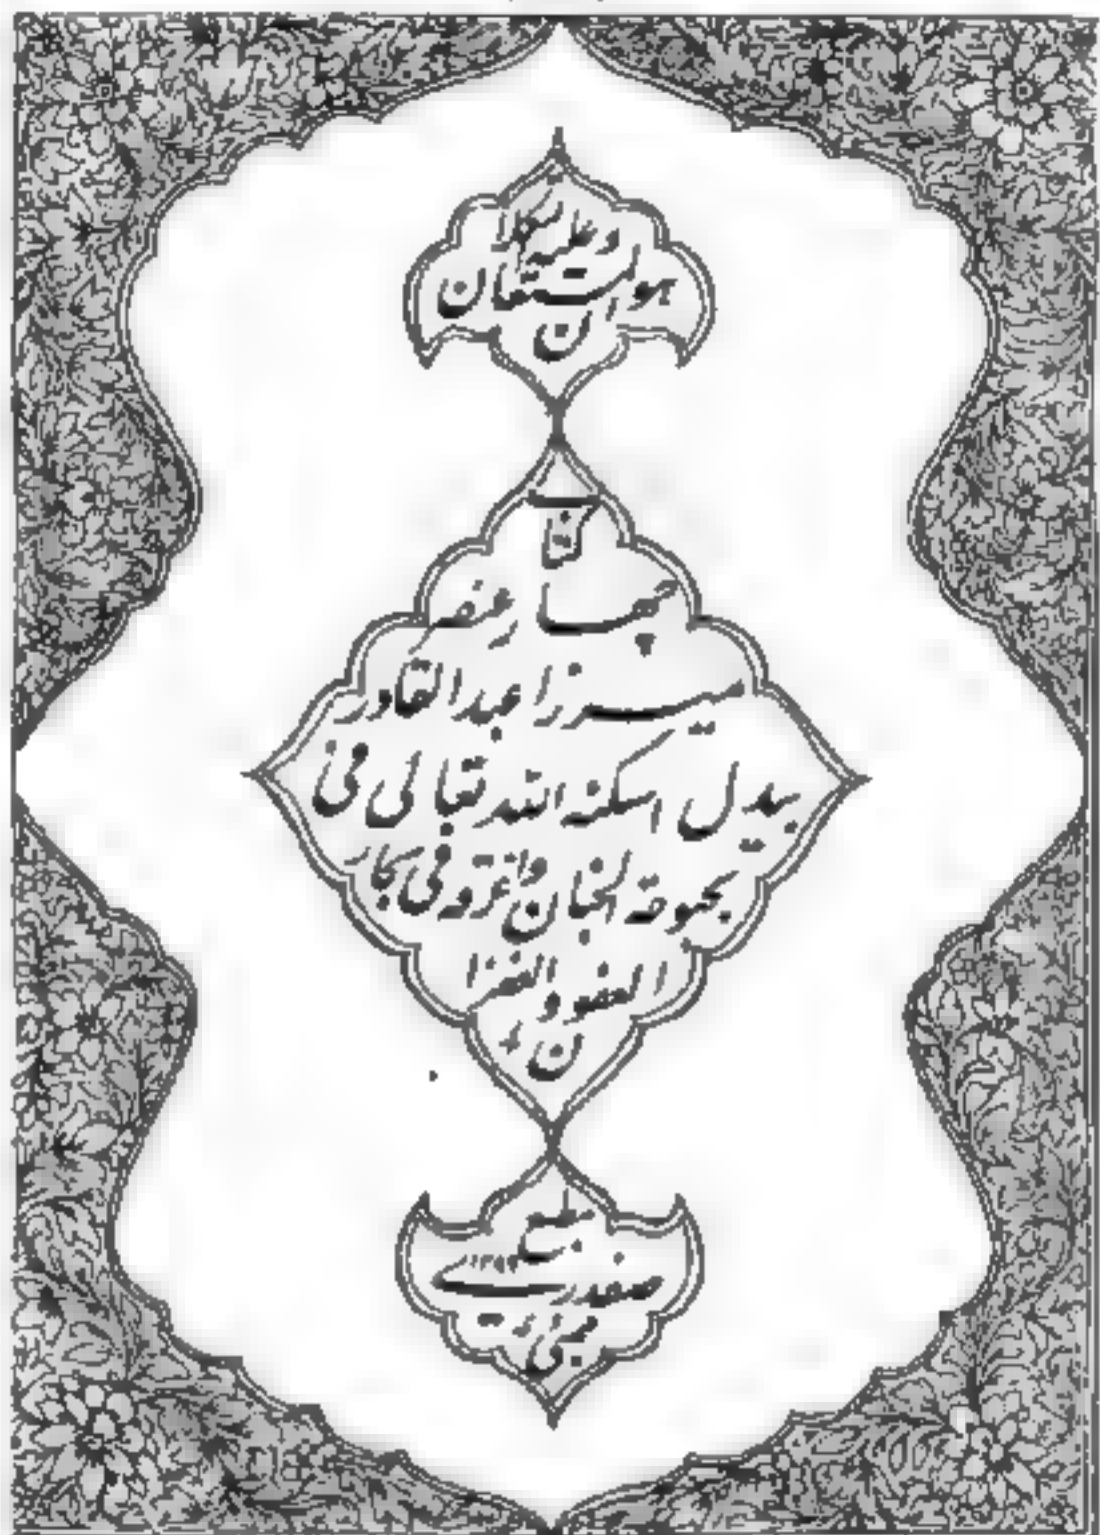 هو المستعان
وعلیه التکلان
کتاب
چهار عنصر
میرزا عبدالقادر
بیدل اسکنه الله تعالی فی
بحبوحة الجنان واغرقه فی بحار
العفو والغفران
مطبع
صفدری
بمبئی